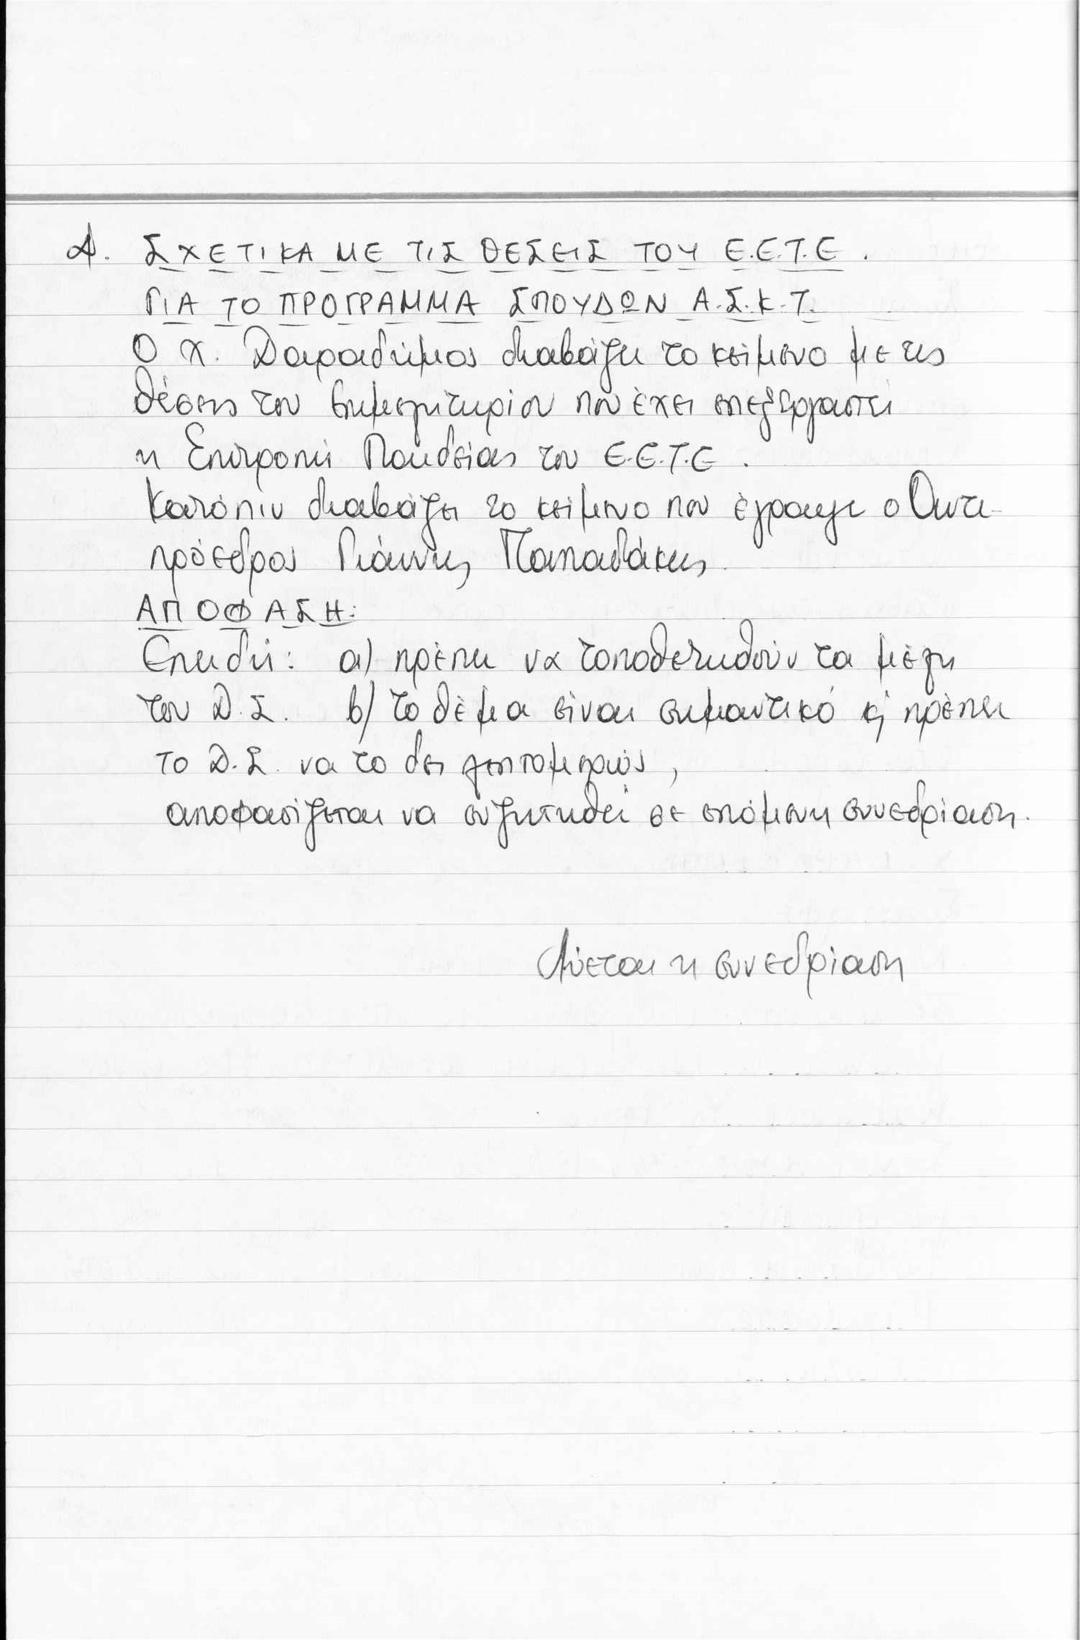 Δ. ΣΧΕΤΙΚΑ ΜΕ ΤΙΣ ΘΕΣΕΙΣ ΤΟΥ Ε.Ε.Τ.Ε.
ΓΙΑ ΤΟ ΠΡΟΓΡΑΜΜΑ ΣΠΟΥΔΩΝ Α.Σ.Κ.Τ.
Ο Χ. Δαραδήμος διαβάζει το κείμενο με τις
θέσεις του Επιμελητηρίου που έχει επεξεργαστεί
η Επιτροπή Παιδείας του Ε.Ε.Τ.Ε.
Κατόπιν διαβάζει το κείμενο που έγραψε ο Αντι-
πρόεδρος Γιάννης Παπαδάκης.
ΑΠΟΦΑΣΗ:
Επειδή: α) πρέπει να τοποθετηθούν τα μέλη
του Δ.Σ. β) το θέμα είναι σημαντικό κ' πρέπει
το Δ.Σ. να το δει λεπτομερώς,
αποφασίζεται να συζητηθεί σε επόμενη συνεδρίαση.
Λύεται η συνεδρίαση